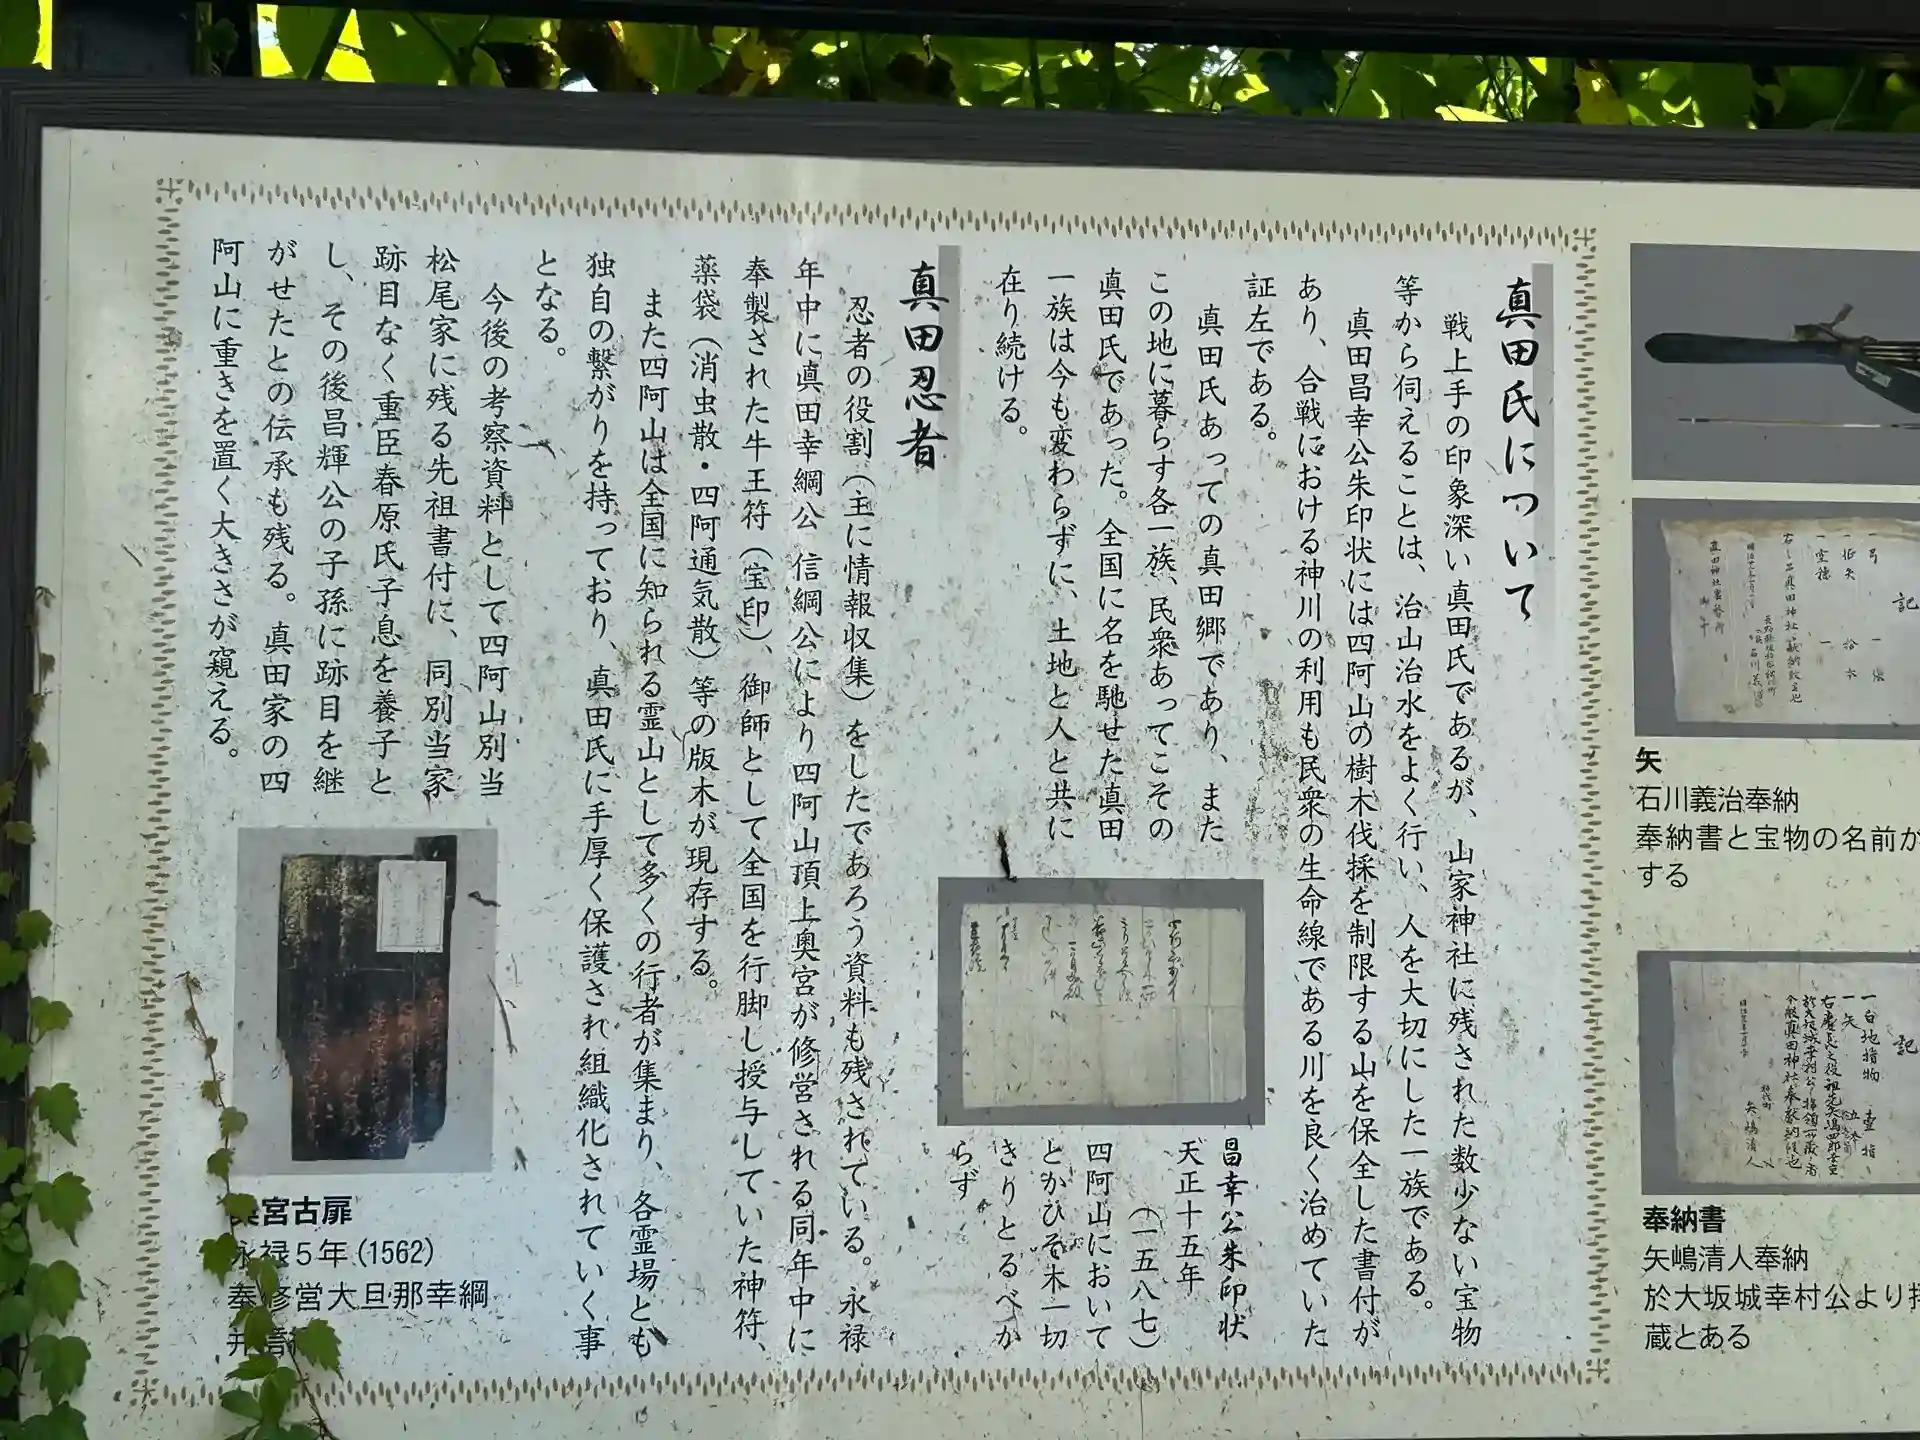 真田氏について
戦上手の印象深い真田氏であるが、山家神社に残された数少ない宝物
等から伺えることは、治山治水をよく行い、人を大切にした一族である。
真田昌幸公朱印状には四阿山の樹木伐採を制限する山を保全した書付が
あり、合戦における神川の利用も民衆の生命線である川を良く治めていた
証左である。
真田氏あっての真田郷であり、また
この地に暮らす各一族、民衆あってこその
真田氏であった。全国に名を馳せた真田
一族は今も変わらずに、土地と人と共に
在り続ける。
昌幸公朱印状
天正十五年
(一五八七)
四阿山において
とかひそ木一切
きりとるべか
らず
真田忍者
忍者の役割(主に情報収集)をしたであろう資料も残されている。永禄
年中に真田幸綱公 信綱公により四阿山頂上奥宮が修営される同年中に
奉製された牛王符(宝印)、御師として全国を行脚し授与していた神符、
薬袋(消虫散・四阿通気散)等の版木が現存する。
また四阿山は全国に知られる霊山として多くの行者が集まり、各霊場とも
独自の繋がりを持っており、真田氏に手厚く保護され組織化されていく事
となる。
今後の考察資料として四阿山別当
松尾家に残る先祖書付に、同別当家
跡目なく重臣春原氏子息を養子と
し、その後昌輝公の子孫に跡目を継
がせたとの伝承も残る。真田家の四
阿山に重きを置く大きさが窺える。
宮古扉
永禄5年(1562)
奉修営大旦那幸綱
矢
石川義治奉納
奉納書と宝物の名前が
する
奉納書
矢嶋清人奉納
於大坂城幸村公より
蔵とある
記
一弓 一張
一征矢 拾本
一空穂 一
記
一白地指物 壹指
一矢